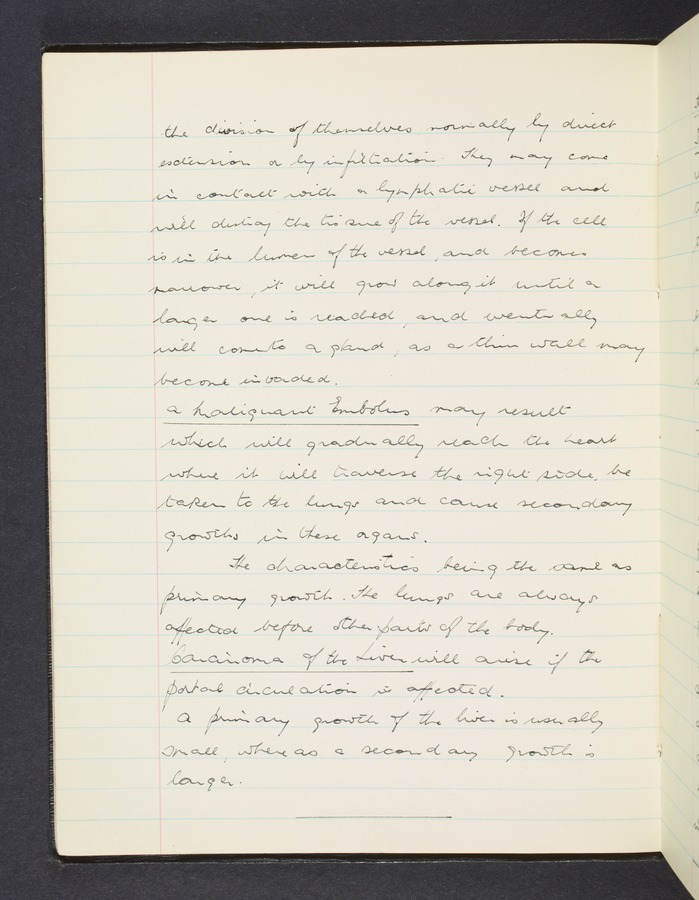 the division of themselves normally by direct
extension or by infiltration. They may come
in contact with a lymphatic vessel and
will destroy the tissue of the vessel. If the cell
is in the lumen of the vessel, and becomes
narrower, it will grow along it until a
larger one is reached, and eventually
will come to a gland, as a thin wall may
become invaded.
a Malignant Embolus may result
which will gradually reach the heart
where it will traverse the right side, be
taken to the lungs and cause secondary
growths in these organs.
The characteristics being the same as
primary growth. The lungs are always
affected before other parts of the body.
Carcinoma of the Liver will arise if the
portal circulation is affected.
A primary growth of the liver is usually
small, whereas a secondary growth is
larger.